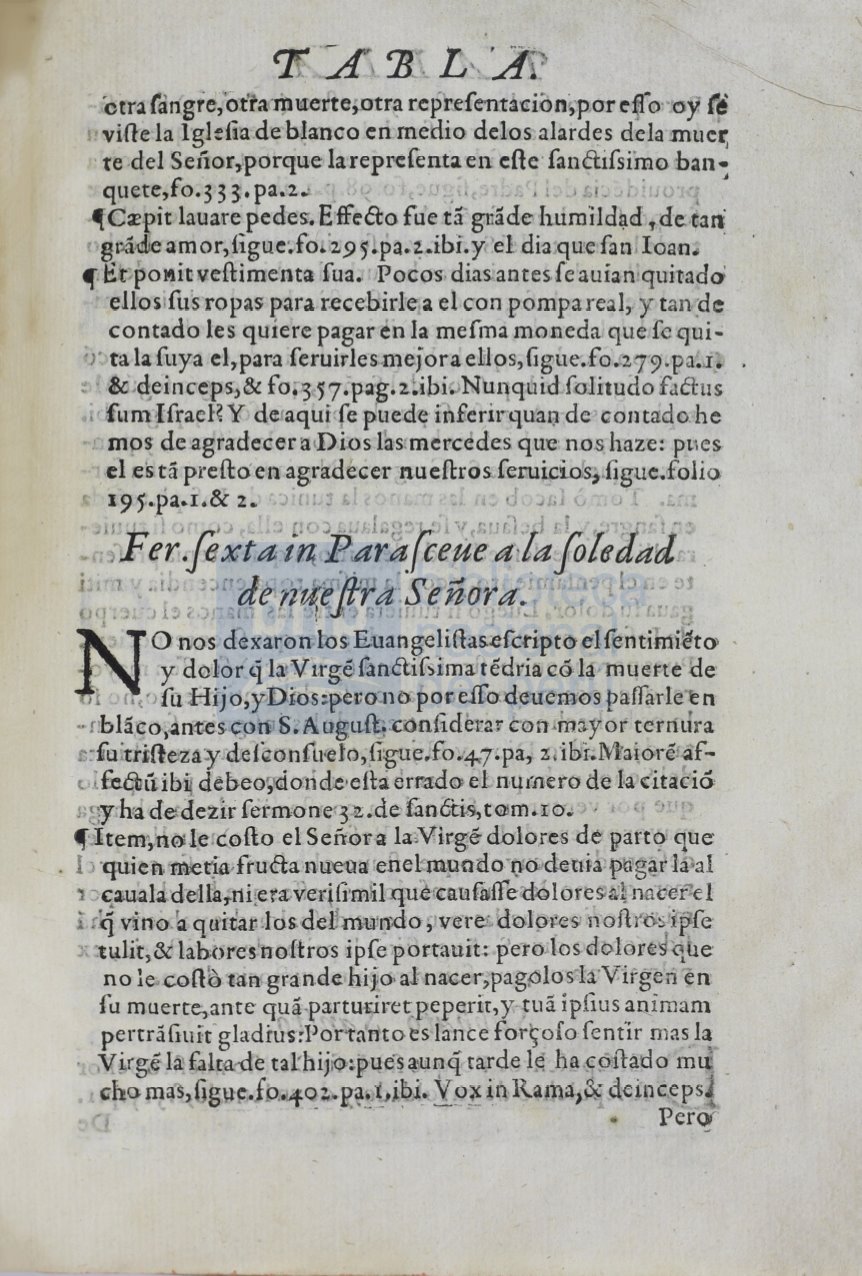 TABLA.
otra ſangre, otra muerte, otra repreſentacion, por eſſo oy ſe
viſte la Igleſia de blanco en medio delos alardes dela muer
te del Señor, porque la repreſenta en eſte ſanctiſsimo ban-
quete, fo.333.pa.2.
¶Cæpit lauare pedes. Effecto fue tã grãde humildad, de tan
grãde amor, ſigue.fo.295.pa.2.ibi.y el dia que ſan Ioan.
¶ Et ponit veſtimenta ſua. Pocos dias antes ſe auian quitado
ellos ſus ropas para recebirle a el con pompa real, y tan de
contado les quiere pagar en la meſma moneda que ſe qui-
ta la ſuya el, para ſeruirles mejor a ellos, ſigue.fo.279.pa.1.
& deinceps, & fo.357.pag.2.ibi. Nunquid ſolitudo factus
ſum Iſrael? Y de aqui ſe puede inferir quan de contado he
mos de agradecer a Dios las mercedes que nos haze: pues
el es tã preſto en agradecer nueſtros ſeruicios, ſigue.folio
195.pa.1.& 2.
Fer. ſexta in Paraſceue a la ſoledad
de nueſtra Señora.
NO nos dexaron los Euangeliſtas eſcripto el ſentimiẽto
y dolor q̃ la Virgẽ ſanctiſsima tẽdria cõ la muerte de
ſu Hijo, y Dios: pero no por eſſo deuemos paſſarle en
blãco, antes con S. Auguſt. conſiderar con mayor ternura
ſu triſteza y deſconſuelo, ſigue.fo.47.pa, 2.ibi.Maiorẽ af-
fectũ ibi debeo, donde eſta errado el numero de la citaciõ
y ha de dezir ſermone 32.de ſanctis, tom.10.
¶Item, no le coſto el Señor a la Virgẽ dolores de parto que
quien metia fructa nueua enel mundo no deuia pagar la al
cauala della, ni era veriſimil que cauſaſſe dolores al nacer el
q̃ vino a quitar los del mundo, vere dolores noſtros ipſe
tulit, & labores noſtros ipſe portauit: pero los dolores que
no le coſtò tan grande hijo al nacer, pagolos la Virgen en
ſu muerte, ante quã parturiret peperit, y tuã ipſius animam
pertrãſiuit gladius: Por tanto es lance forçoſo ſentir mas la
Virgẽ la falta de tal hijo: pues aunq̃ tarde le ha coſtado mu
cho mas, ſigue.fo.402.pa.1.ibi. Vox in Rama, & deinceps.
Pero